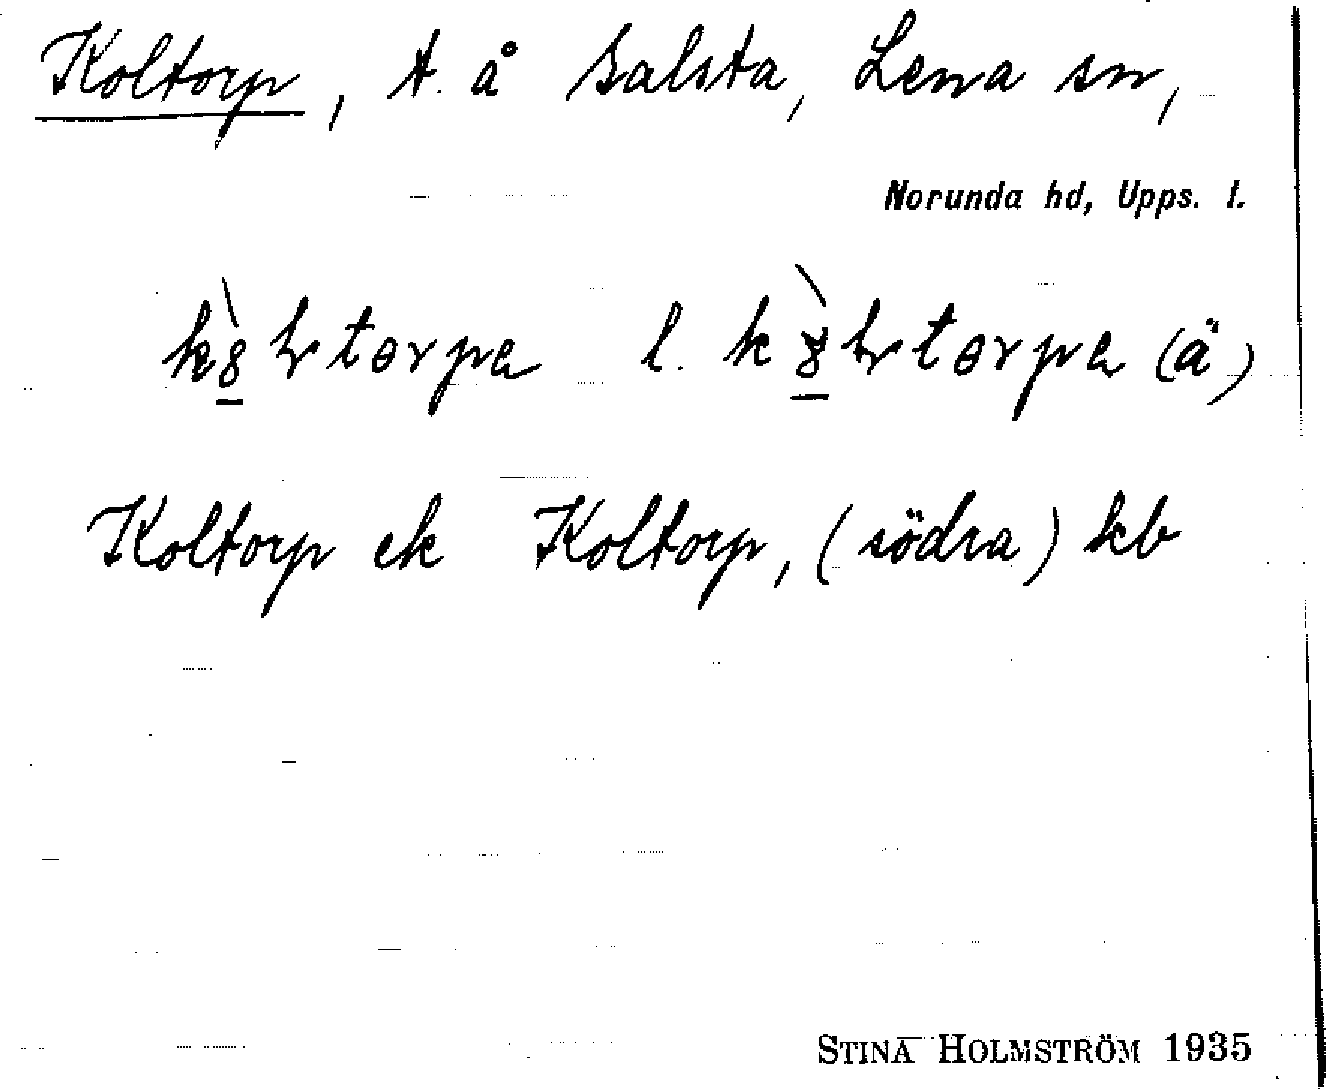 Koltorp, t. å Salsta, Lena sn,
Norunda hd, Upps. l.
l. (ä)
Koltorp ek Koltorp, (södra) kb
STINA HOLMSTRÖM 1935